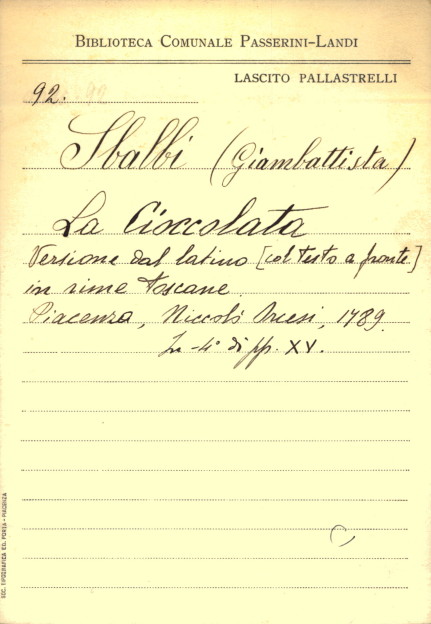 BIBLIOTECA COMUNALE PASSERINI-LANDI
LASCITO PALLASTRELLI
92.
Sbalbi (Giambattista)
La Cioccolata
Versione dal latino [col testo a fronte]
in rime toscane
Piacenza, Niccolò Orcesi, 1789.
In-4° di pp. XV.
SOC. TIPOGRAFICA ED. PORTA - PIACENZA